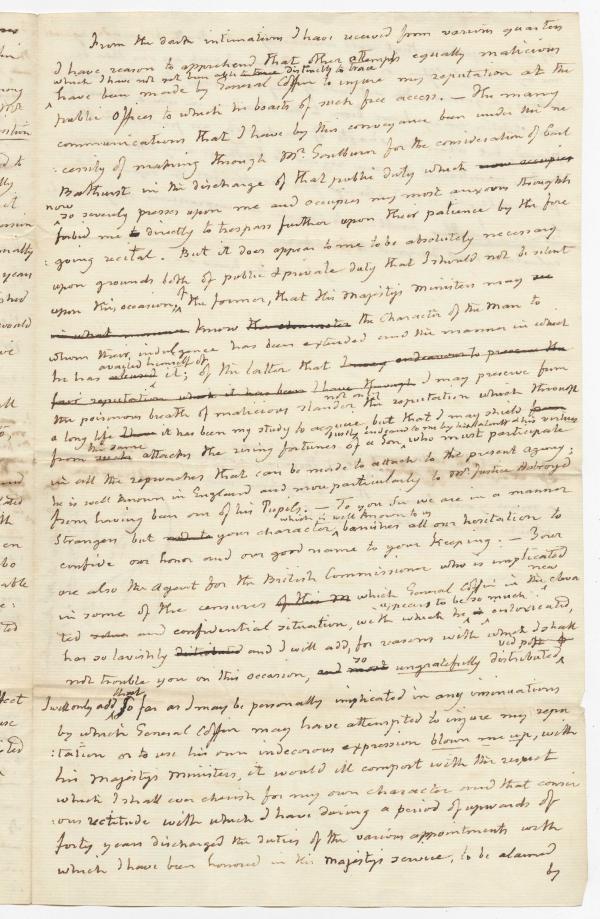 From the dark intimations I have received from various quarters
I have reason to apprehend that other attempts equally malicious
which I have not been able to trace distinctly
have been made by General Coffin to injure my reputation at the
public Offices to which he boasts of such free access. — The many
communications that I have by this conveyance been under the ne
:cessity of making through Mr. Goulburn for the consideration of Earl
Bathurst in the discharge of that public duty which now occupies
now
so severely presses upon me and occupies my most anxious thoughts
forbid me to directly to trespass further upon their patience by the fore
:going recital. But it does appear to me to be absolutely necessary
upon grounds both of public & private duty that I should not be silent
upon this occasion, of the former, that His Majestys Ministers may see
in what manner know the character the Character of the Man to
whom their indulgence has been extended and the manner in which
availed himself of
he has abused it; of the latter that I may endeavour to preserve the
fair reputation which it has been I have through I may preserve from
the poisonous breath of malicious slander not only the reputation which through
a long life I have it has been my study to acquire, but that I may shield from
justly endeared to me by his talents & his virtues
from the same attacks the rising fortunes of a son, who must participate
in all the reproaches that can be made to attach to the present agency;
he is well known in England and more particularly to Mr. Justice Holroyd
from having been one of his Pupils. — To you Sir we are in a manner
which is well known to us
Strangers but your character, banishes all our hesitation to
confide our honor and our good name to your keeping. — Your
are also the Agent for the British Commissioner who is implicated
in some of the censures of this which General Coffin in the new eleva
appears to be so much
ted and confidential situation, with which he is intoxicated,
has so lavishly distributed and I will add, for reasons with which I shall
not trouble you on this occasion, and most so ungratefully distributed
I will only add, that So far as I may be personally implicated in any insinuations
by which General Coffin may have attempted to injure my repu
:tation or to use his own indecorous expression blown me up, with
his Majestys Ministers, it would ill comport with the respect
which I shall ever cherish for my own character and that consci
:ous rectitude with which I have during a period of upwards of
forty years discharged the duties of the various appointments with
which I have been honored in His Majestys service, to be alarmed
by